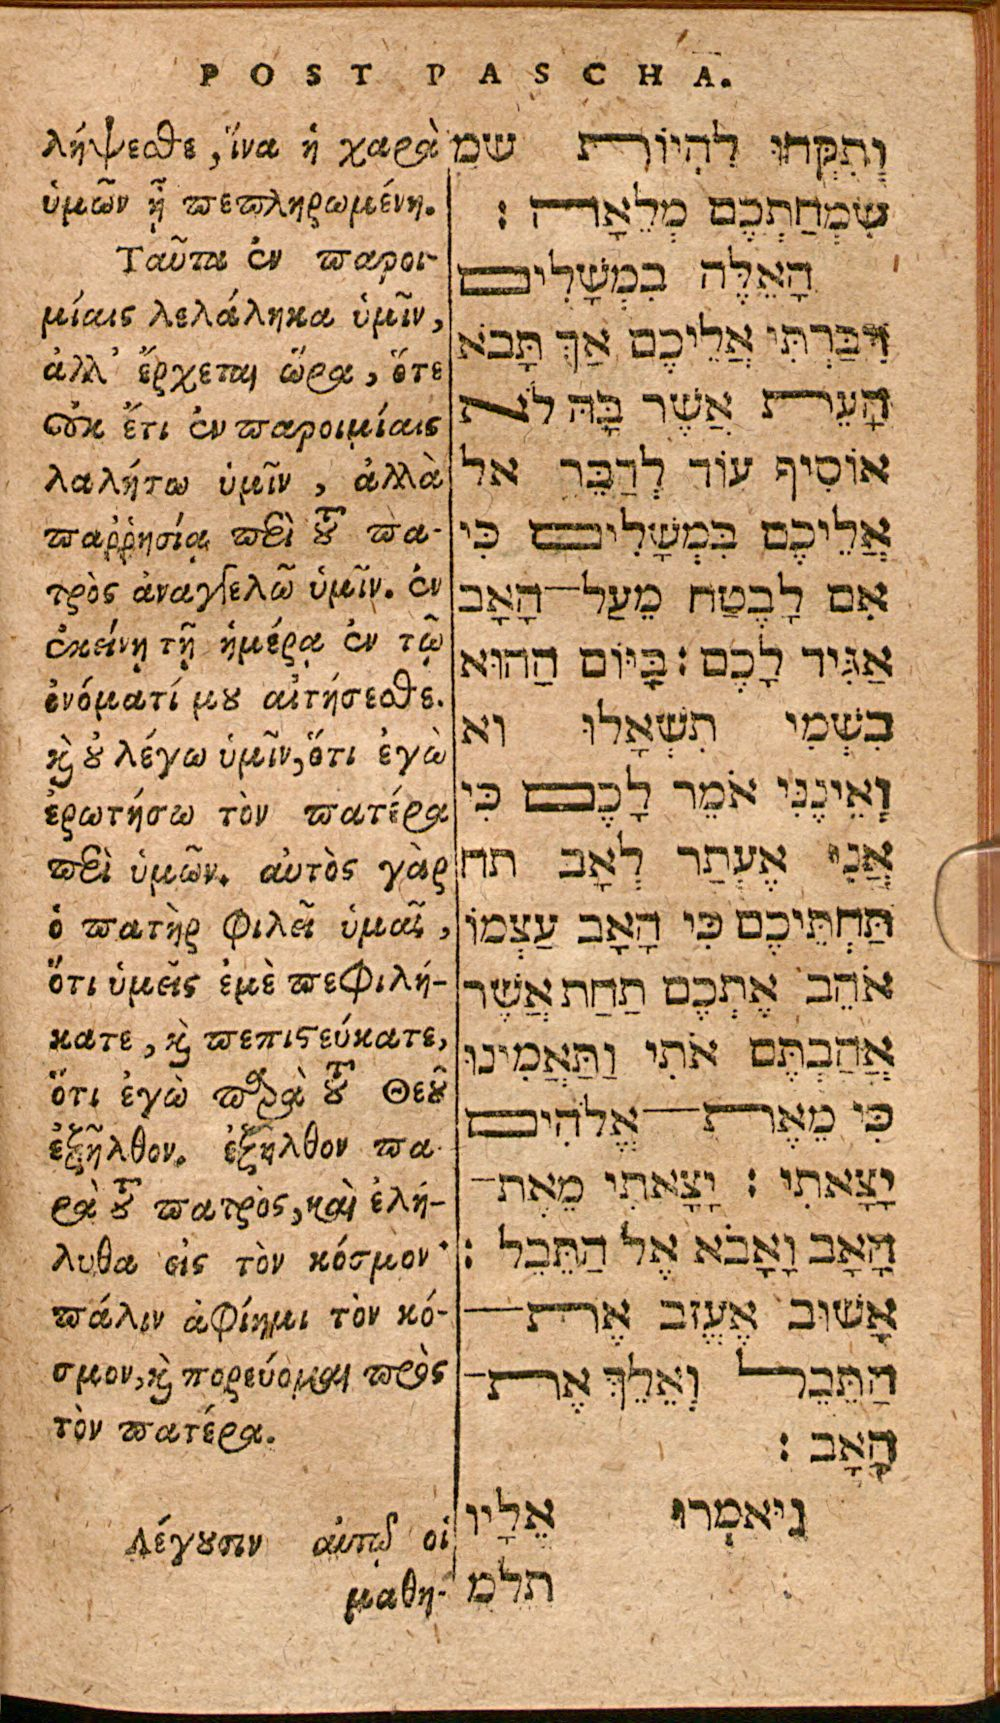 POST PASCHA.
λήψεσθε, ἵνα ἡ χαρὰ
ὑμῶν ᾖ πεπληρωμένη.
Ταῦτα ἐν παροι-
μίαις λελάληκα ὑμῖν,
ἀλλ' ἔρχεται ὥρα, ὅτε
οὐκ ἔτι ἐν παροιμίαις
λαλήσω ὑμῖν, ἀλλὰ
παῤῥησίᾳ περὶ τοῦ πα-
τρὸς ἀναγγελῶ ὑμῖν. ἐν
ἐκείνῃ τῇ ἡμέρᾳ ἐν τῷ
ὀνόματί μου αἰτήσεσθε.
καὶ οὐ λέγω ὑμῖν, ὅτι ἐγὼ
ἐρωτήσω τὸν πατέρα
περὶ ὑμῶν. αὐτὸς γὰρ
ὁ πατὴρ φιλεῖ ὑμᾶς,
ὅτι ὑμεῖς ἐμὲ πεφιλή-
κατε, καὶ πεπιστεύκατε,
ὅτι ἐγὼ παρὰ τοῦ Θεοῦ
ἐξῆλθον. ἐξῆλθον πα-
ρὰ τοῦ πατρὸς, καὶ ἐλή-
λυθα εἰς τὸν κόσμον·
πάλιν ἀφίημι τὸν κό-
σμον, καὶ πορεύομαι πρὸς
τὸν πατέρα.
Λέγουσιν αὐτῷ οἱ
μαθη-
וְתִקְּחוּ לִהְיוֹת שמ
שִׂמְחַתְכֶם מְלֵאָה :
הָאֵלֶּה בִמְשָׁלִים
דִּבַּרְתִּי אֲלֵיכֶם אַךְ תָּבֹא
הָעֵת אֲשֶׁר בָּהּ לֹא
אוֹסִיף עוֹד לְדַבֵּר אל
אֲלֵיכֶם בִּמְשָׁלִים כִּי
אִם לָבֶטַח מֵעַל־הָאָב
אַגִּיד לָכֶם : בַּיּוֹם הַהוּא
בִּשְׁמִי תִשְׁאָלוּ וא
וְאֵינֶנִּי אֹמֵר לָכֶם כִּי
אֲנִי אֶעְתַּר לְאָב תח
תַּחְתֵּיכֶם כִּי הָאָב עַצְמוֹ
אֹהֵב אֶתְכֶם תַּחַת אֲשֶׁר
אֲהַבְתֶּם אֹתִי וַתַּאֲמִינוּ
כִּי מֵאֵת־אֱלֹהִים
יָצָאתִי : יָצָאתִי מֵאֵת־
הָאָב וָאָבֹא אֶל הַתֵּבֵל :
אָשׁוּב אֶעֱזֹב אֶת־
הַתֵּבֵל וְאֵלֵךְ אֶת־
הָאָב :
וַיֹּאמְרוּ אֵלָיו
תלמ